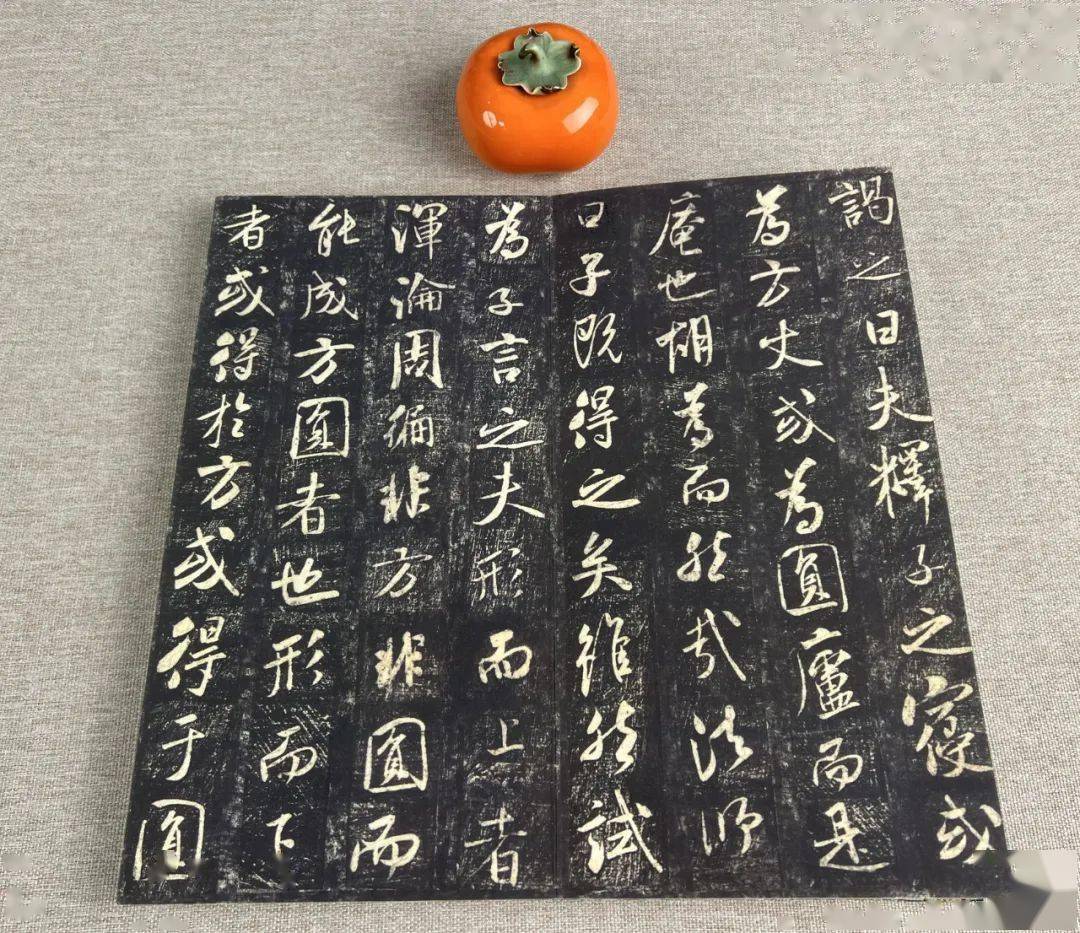 謁之曰夫釋子之寢或
為方丈或為圓廬而是
庵也胡為而然哉法師
曰子既得之矣雖然試
為子言之夫形而上者
渾淪周徧非方非圓而
能成方圓者也形而下
者或得於方或得于圓